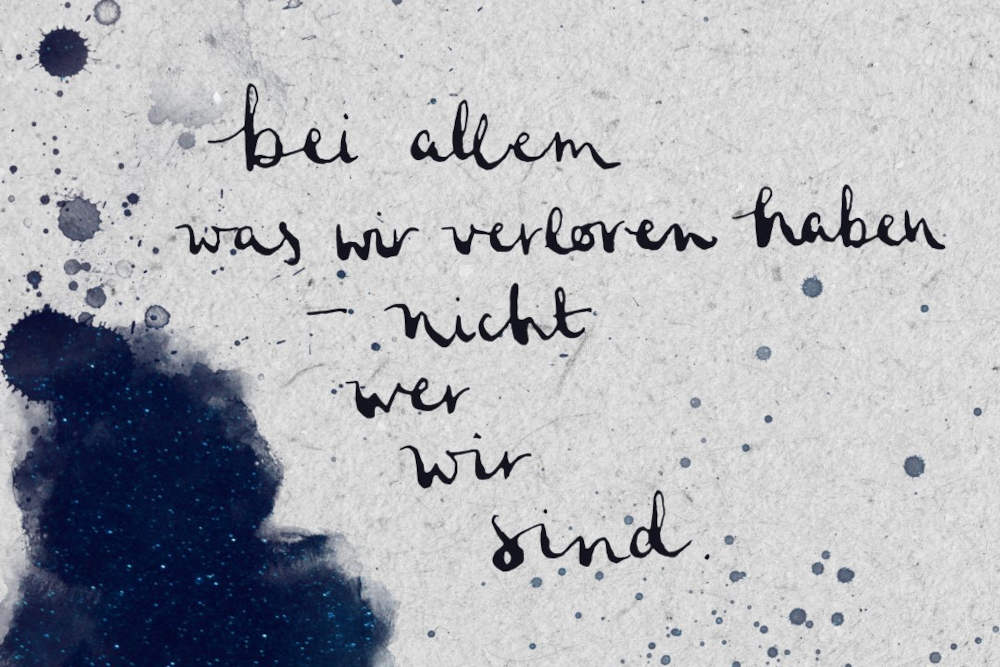 bei allem
was wir verloren haben
– nicht
wer
wir
sind.